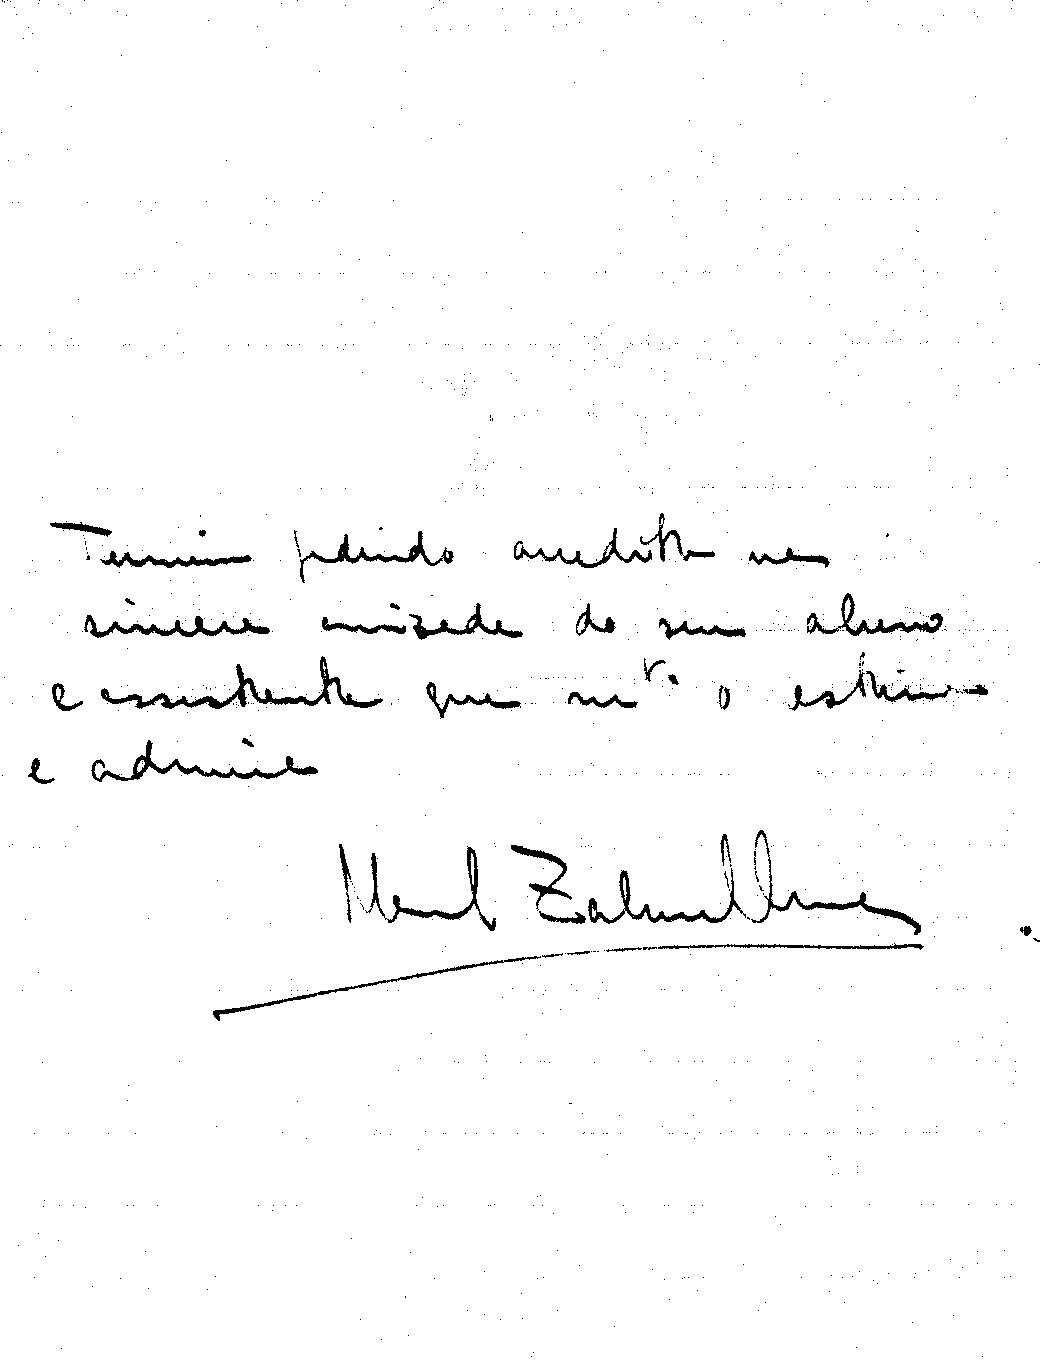 Termino pedindo acredite na
sincera amizade do seu aluno
e assistente que mtº. o estima
e admira
Manuel Zaluar Nunes